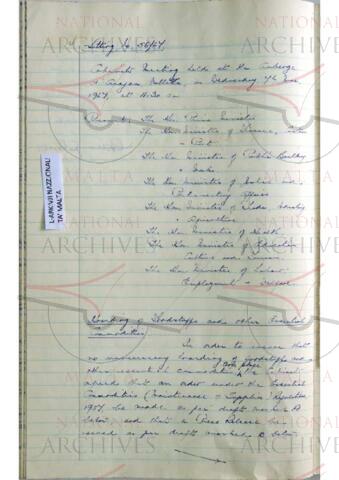 Sitting No. 56/67
Cabinet's Meeting held at the Auberge
d'Aragon, Valletta, on Wednesday 7th
1967, at 11.30 a.m.
Present: The Hon. Prime Minister
The Hon. Minister of Finance,
Port
The Hon. Minister of Public Building
& Works
The Hon. Minister of Justice and
Parliamentary Affairs
The Hon. Minister of Trade, Industry
& Agriculture
The Hon. Minister of Health
The Hon. Minister of Education
Culture and Tourism
The Hon. Minister of Labour,
Employment & Welfare
Hoarding of Foodstuffs and other Essential
Commodities
In order to ensure that
no unnecessary hoarding of foodstuffs and
other essential commodities took place the Cabinet
agreed that an order under the Essential
Commodities (Maintenance of Supplies) Regulations
1967 be made as per draft marked A
below, and that a Press Release be
issued as per draft marked B below.
L-ARKIVJI NAZZJONALI
TA' MALTA
NATIONAL
ARCHIVES
MALTA